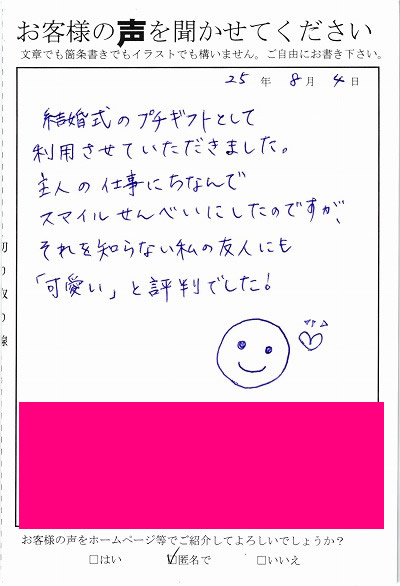 お客様の声を聞かせてください
文章でも箇条書きでもイラストでも構いません。ご自由にお書き下さい。
25年 8月 4日
結婚式のプチギフトとして
利用させていただきました。
主人の仕事にちなんで
スマイルせんべいにしたのですが、
それを知らない私の友人にも
「可愛い」と評判でした!
切り取り線
お客様の声をホームページ等でご紹介してよろしいでしょうか?
□はい ☑匿名で □いいえ